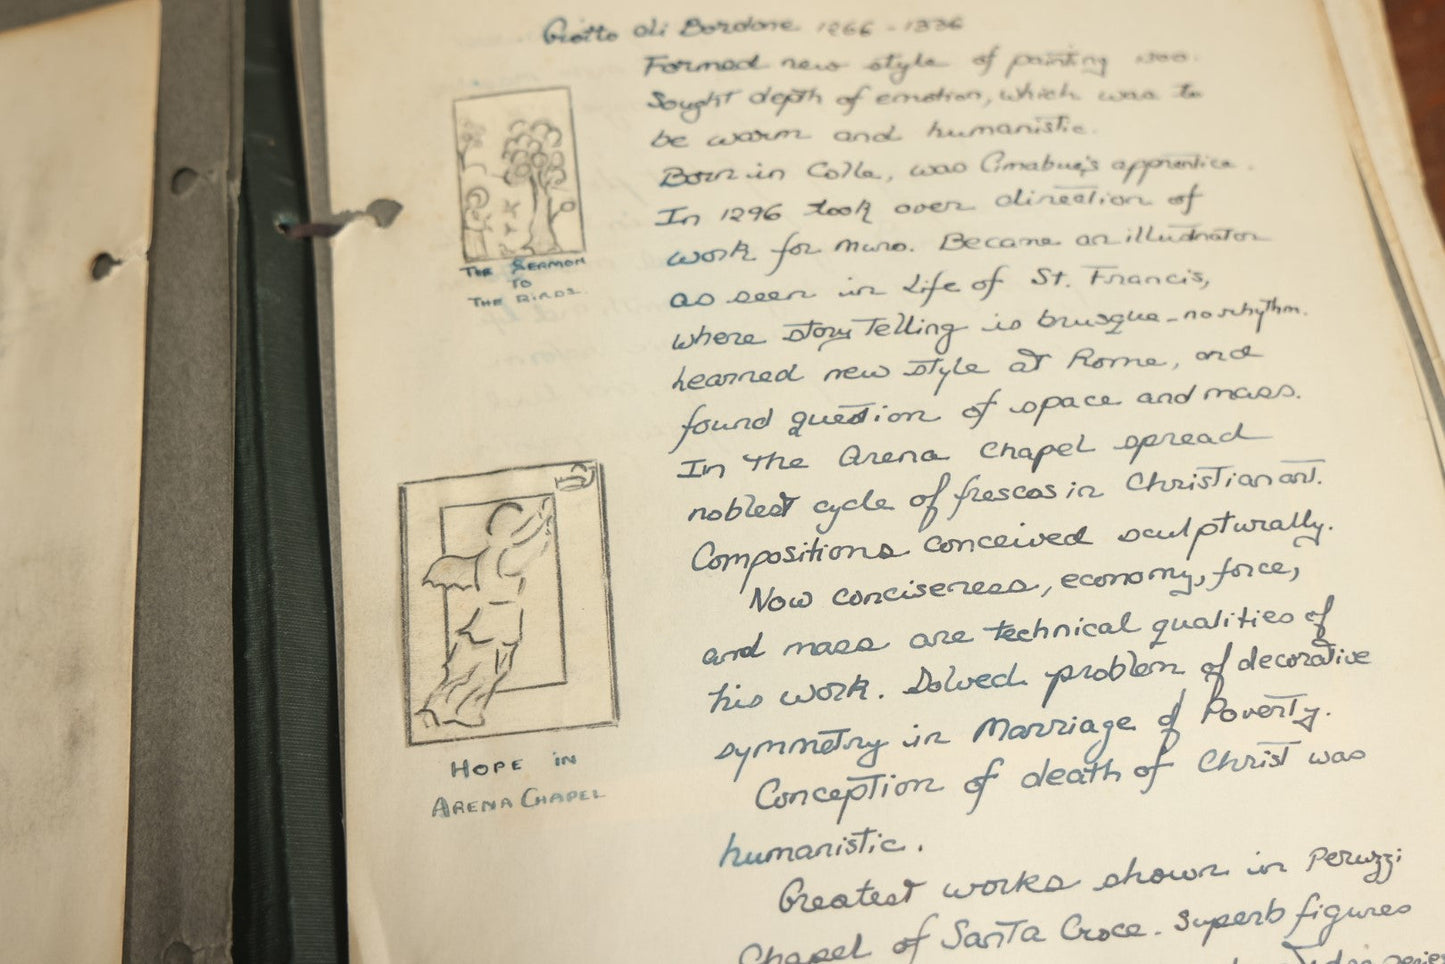 Giotto di Bordone 1266 - 1336
Formed new style of painting 1300.
Sought depth of emotion, which was to
be warm and humanistic.
Born in Colle, was Cimabue's apprentice.
In 1296 took over direction of
work for Muro. Became an illustrator
as seen in Life of St. Francis,
where story telling is brusque - no rhythm.
Learned new style at Rome, and
found question of space and mass.
In the Arena Chapel spread
noblest cycle of frescos in Christian art.
Compositions conceived sculpturally.
Now conciseness, economy, force,
and mass are technical qualities of
his work. Solved problem of decorative
symmetry in Marriage of Poverty.
Conception of death of Christ was
humanistic.
Greatest works shown in Peruzzi
Chapel of Santa Croce. Superb figures
The Sermon
to
The Birds.
Hope in
Arena Chapel